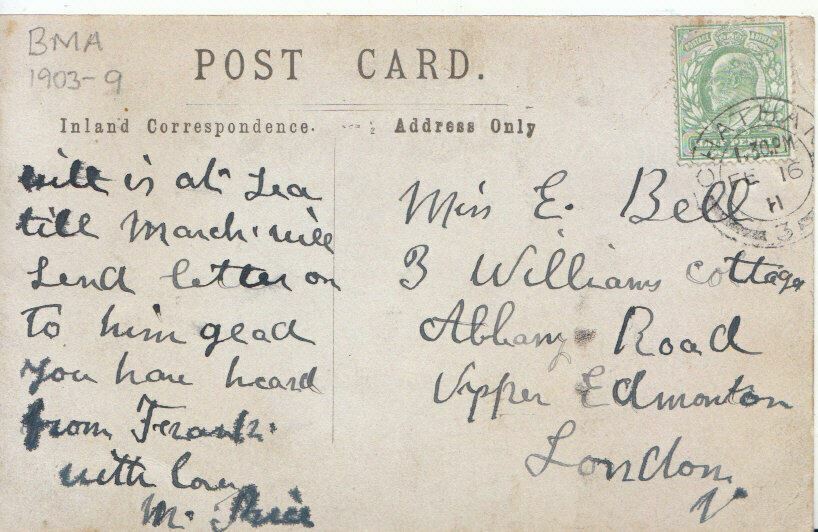 BMA
1903-9
POST CARD.
Inland Correspondence.
Address Only
is at Sea
till March will
Send letter on
to him glad
you have heard
from Frank.
with love
M.
Miss E. Bell
3 Williams Cottage
Road
Upper Edmonton
London
N
CHATHAM
1.30 PM
FE 16
11
3